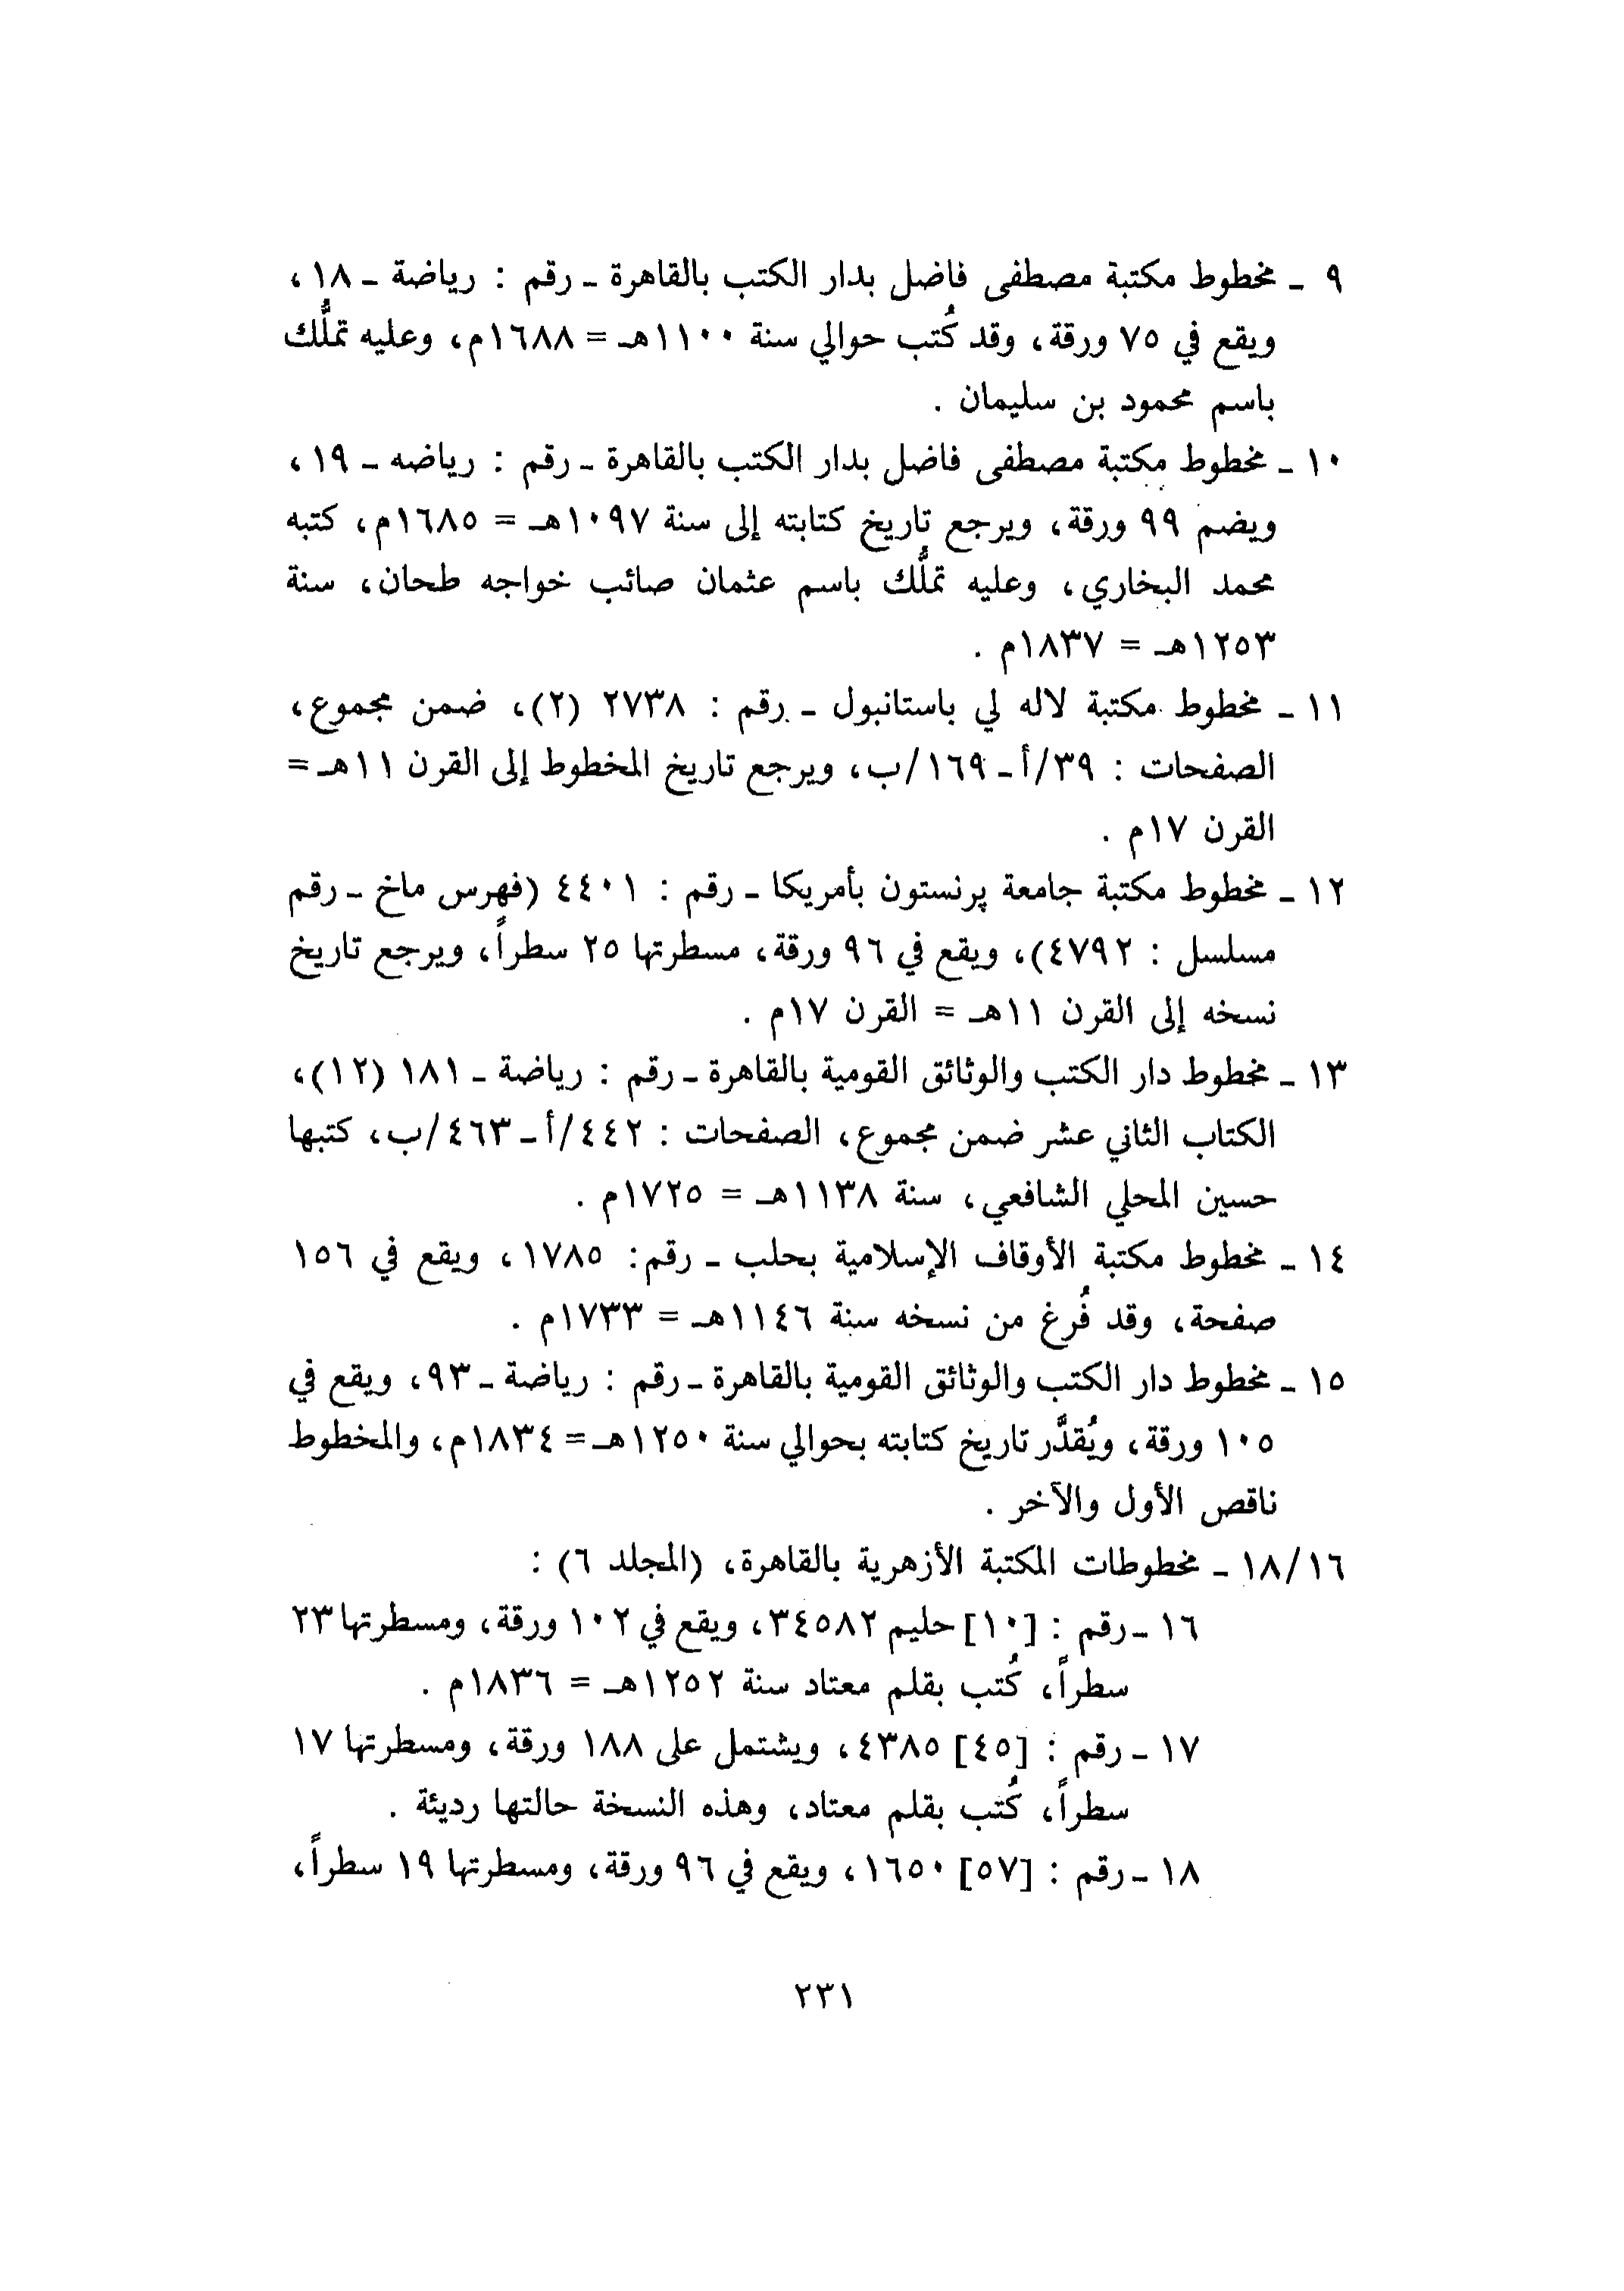 ٩ ـ مخطوط مكتبة مصطفى فاضل بدار الكتب بالقاهرة ـ رقم : رياضة ـ ١٨،
ويقع في ٧٥ ورقة، وقد كُتب حوالي سنة ١١٠٠هـ = ١٦٨٨م، وعليه تملُّك
باسم محمود بن سليمان .
١٠ ـ مخطوط مكتبة مصطفى فاضل بدار الكتب بالقاهرة ـ رقم : رياضه ـ ١٩،
ويضم ٩٩ ورقة، ويرجع تاريخ كتابته إلى سنة ١٠٩٧هـ = ١٦٨٥م، كتبه
محمد البخاري، وعليه تملُّك باسم عثمان صائب خواجه طحان، سنة
١٢٥٣هـ = ١٨٣٧م .
١١ ـ مخطوط مكتبة لاله لي باستانبول ـ رقم : ٢٧٣٨ (٢)، ضمن مجموع،
الصفحات : ٣٩/أ ـ ١٦٩/ب، ويرجع تاريخ المخطوط إلى القرن ١١هـ =
القرن ١٧م .
١٢ ـ مخطوط مكتبة جامعة پرنستون بأمريكا ـ رقم : ٤٤٠١ (فهرس ماخ ـ رقم
مسلسل : ٤٧٩٢)، ويقع في ٩٦ ورقة، مسطرتها ٢٥ سطراً، ويرجع تاريخ
نسخه إلى القرن ١١هـ = القرن ١٧م .
١٣ ـ مخطوط دار الكتب والوثائق القومية بالقاهرة ـ رقم : رياضة ـ ١٨١ (١٢)،
الكتاب الثاني عشر ضمن مجموع، الصفحات : ٤٤٢/أ ـ ٤٦٣/ب، كتبها
حسين المحلي الشافعي، سنة ١١٣٨هـ = ١٧٢٥م .
١٤ ـ مخطوط مكتبة الأوقاف الإسلامية بحلب ـ رقم: ١٧٨٥، ويقع في ١٥٦
صفحة، وقد فُرغ من نسخه سنة ١١٤٦هـ = ١٧٣٣م .
١٥ ـ مخطوط دار الكتب والوثائق القومية بالقاهرة ـ رقم : رياضة ـ ٩٣، ويقع في
١٠٥ ورقة، ويُقدَّر تاريخ كتابته بحوالي سنة ١٢٥٠هـ = ١٨٣٤م، والمخطوط
ناقص الأول والآخر .
١٨/١٦ ـ مخطوطات المكتبة الأزهرية بالقاهرة، (المجلد ٦) :
١٦ ـ رقم : [١٠] حليم ٣٤٥٨٢، ويقع في ١٠٢ ورقة، ومسطرتها ٢٣
سطراً، كُتب بقلم معتاد سنة ١٢٥٢هـ = ١٨٣٦م .
١٧ ـ رقم : [٤٥] ٤٣٨٥، ويشتمل على ١٨٨ ورقة، ومسطرتها ١٧
سطراً، كُتب بقلم معتاد، وهذه النسخة حالتها رديئة .
١٨ ـ رقم : [٥٧] ١٦٥٠، ويقع في ٩٦ ورقة، ومسطرتها ١٩ سطراً،
٢٣١